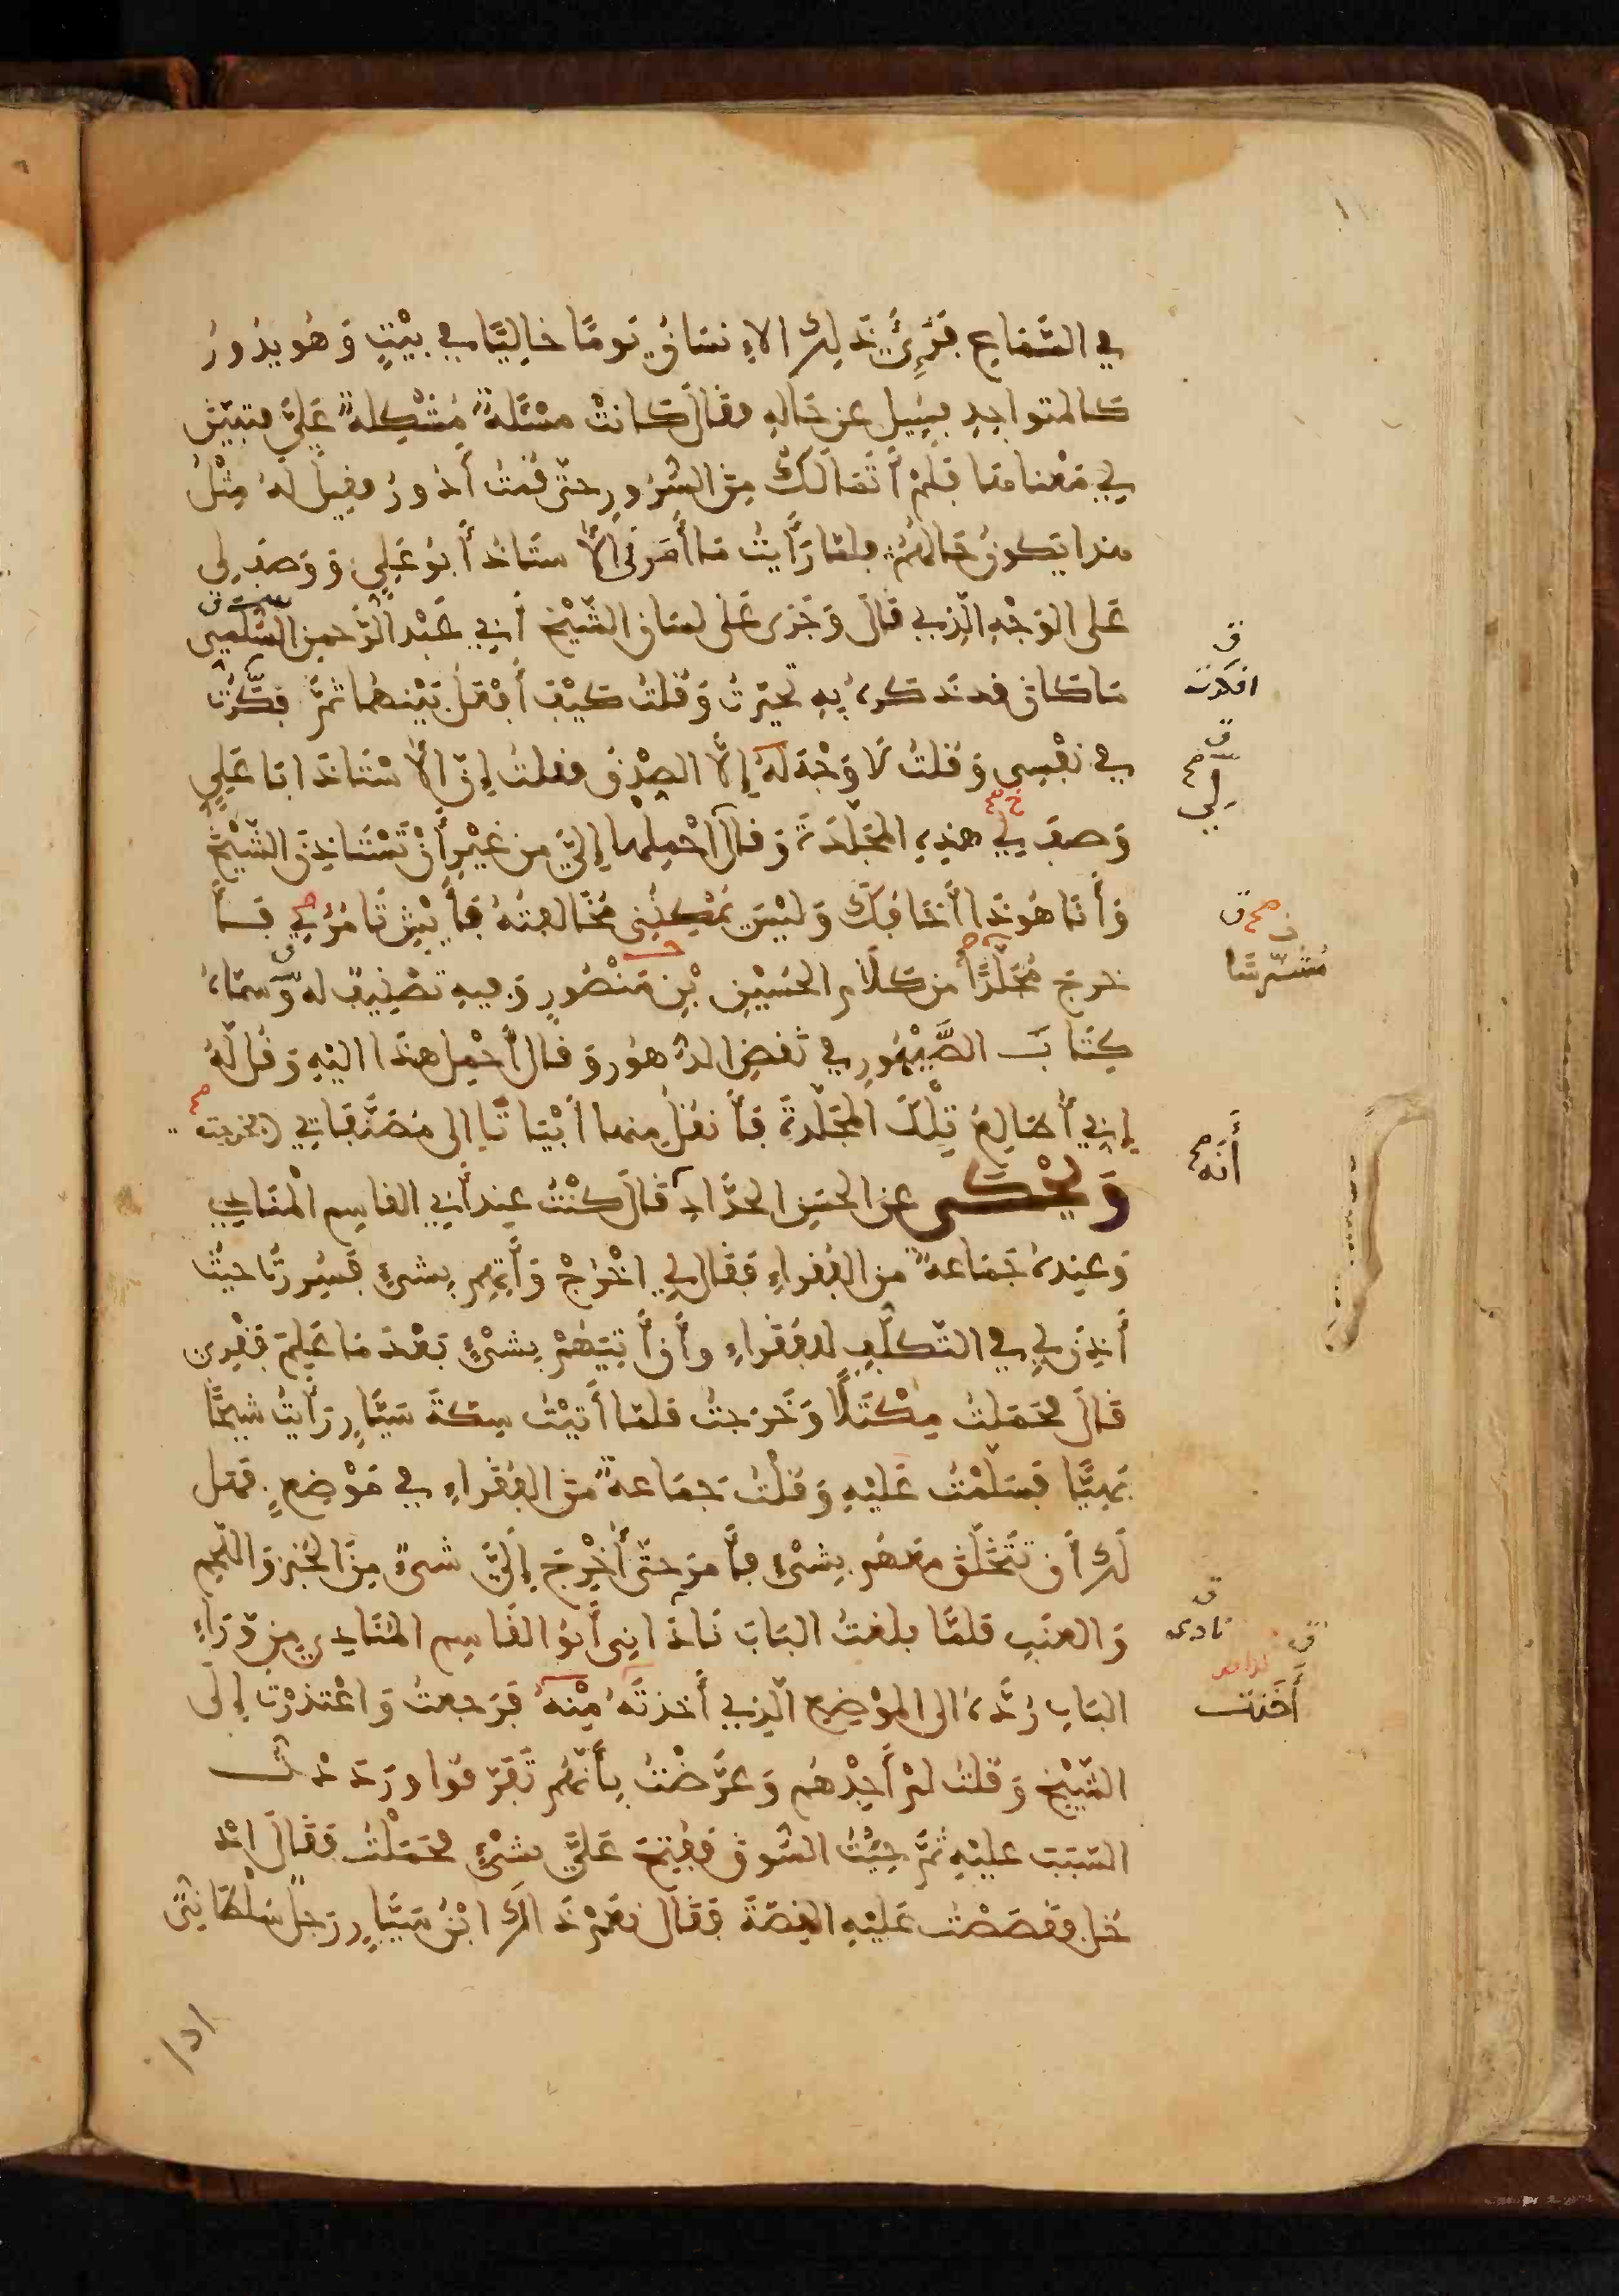 في السَّمَاعِ فَرُئِيَ ذَلِكَ الإِنسَانُ يَومًا خَالِيًا فِي بَيْتٍ وَهُو يَدُورُ
كَالمتواجِدِ فسُئِيلَ عن حَالِهِ فقَالَ كَانتْ مسْئَلةٌ مُشْكِلَةٌ عَلَيَّ فتبيّن
لِي مَعْناهَا فَلَمْ أَتَمَالَكْ مِنَ السُّرُورِ حتّى قُمتُ أَدُورُ فقِيلَ لَهُ مِثْلُ
هذا يَكونُ حَالُهُمْ فلمّا رَأَيتُ مَا أَمَرنِي الأُ سْتَاذ أَبُو عَلِي وَوَصَفَ لِي
عَلى الوَجْهِ الّذِي قَالَ وَجَرَى عَلَى لسَانِ الشَّيْخِ أَبِي عَبْد الرَّحمنِ السُّلَمِي
مَا كَانَ قد ذَكره بِهِ تحيّرتُ وَقُلتُ كَيْفَ أَفْعَلُ بَيْنَهمَا ثمَّ فكّرْتُ
في نَفْسِي وَقُلتُ لَا وَجْهَ لَهُ إِلَّا الصِّدْق فقلتُ إِنّ الأُ سْتَاذَ ابَا عَلِي
وَصفَ لِي هذِهِ المجَلّدَةَ وَقال احْمِلها إِلَيّ مِن غَيْرِ أَنْ تَسْتَاذِنَ الشَّيْخَ
وَأَنَا هُوذَا أَخَافُكَ وَليْسَ يمْكِنُنِي مُخَالفتُهُ فَأَيْش تَامُرُنِي فَأ
خرجَ مُجَلَّدًا من كَلَامِ الحُسَيْنِ بْنِ مَنْصُورٍ وَفيهِ تَصْنِيفٌ له وَسَمّاهُ
كِتَابَ الصَّيْهُورِ في نَقضِ الدُّهُور وَقال أَحْمِل هذَا اليْهِ وَقُل لَهُ
إِنِي أُطَالِعُ تِلْكَ المجَلّدةَ فَأَنقُلُ مِنها أَبْيَاتًا الى مُصَنَّفَاتِي فخرجتُ
وَيُحْكَى عن الحسَنِ الحدَّادِ قَالَ كُنْتُ عِند أَبِي القاسِم الْمنَادِي
وَعِندهُ جَمَاعةٌ من الفُقراءِ فَقال لِي اخْرُجْ وَأْتِهِم بِشيءٍ فَسُرِرتُ حيثُ
أَذِنَ لِي فِي التّكلّفِ للفُقَراءِ وأَن أَتِيَهُمْ بِشيْءٍ بَعْدَ مَا عَلِمَ فَقْرِي
قَالَ فحَمَلتُ مِكْتَلًا وَخَرَجتُ فلمّا أَتيْتُ سِكّةَ سَيَّارٍ رَأَيتُ شيخًا
بَهِيًّا فَسَلّمْتُ عَلَيْهِ وَقُلْتُ جمَاعةٌ مِنَ الفُقَراءِ فِي مَوْضِعٍ فهَل
لَكَ أَن تَتَخَلّقَ معَهُم بِشيْءٍ فأَمرَ حتّى أُخْرِجَ إِلَيَّ شيءٌ مِنَ الخُبزِ وَاللّحم
وَالعنَبِ فلمَّا بلغتُ البَابَ نَادَانِي أَبُو القَاسِم المُنَادِي مِن وَرَاءِ
البَابِ رُدَّهُ الى المَوْضِع الّذِي أَخذتَهُ مِنْهُ فَرَجعتُ وَاعْتذرْتُ إِلَى
الشّيْخِ وَقلتُ لَمْ أَجِدْهُم وَعَرَّضْتُ بِأَنّهُم تَفَرّقُوا ورَدَدْتُ
السّبَبَ عليْهِ ثمَّ جِئْتُ السُّوقَ فَفُتِحَ عَلَيَّ بشيْءٍ فحَمَلْتُ فَقَالَ ادْ
خُل فقَصَصْتُ عَلَيْهِ القِصّةَ فقَال نعَمْ ذَاكَ ابْنُ سَيَّارٍ رَجلٌ سُلْطَانِيٌّ
افكرت
لي
أنه
نادى
أخذت